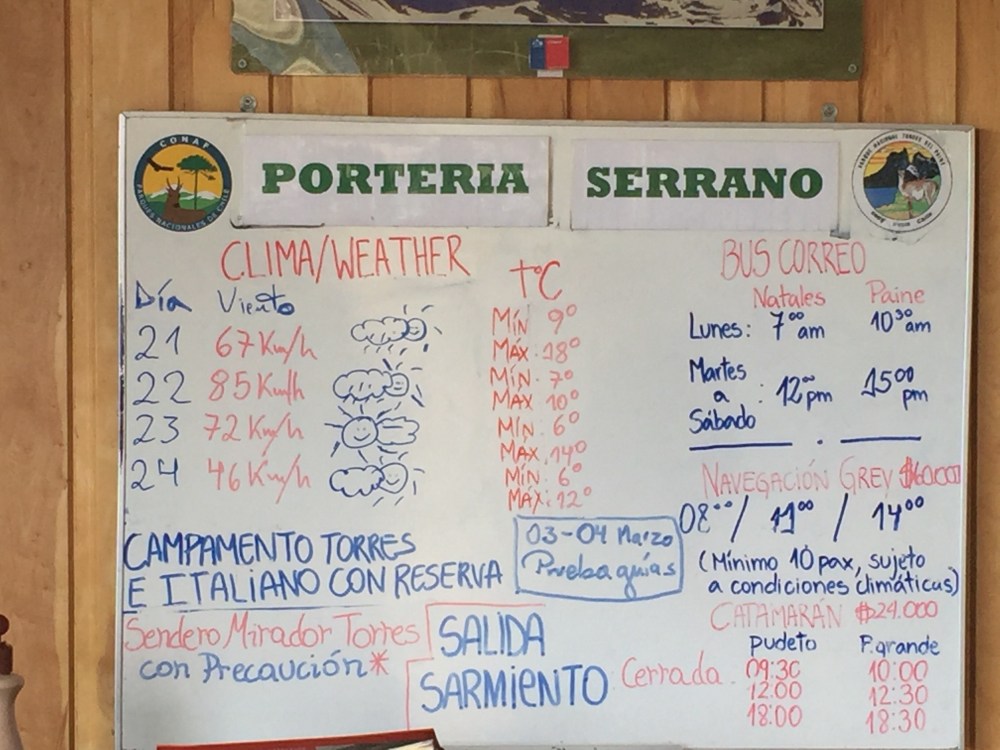 CONAF
PARQUES NACIONALES DE CHILE
PORTERIA SERRANO
PARQUE NACIONAL TORRES DEL PAINE
CLIMA/WEATHER
Día Viento t°C
21 67 Km/h MÍN 9°
MÁX: 18°
22 85 Km/h MÍN: 7°
MAX 10°
23 72 Km/h MÍN: 6°
MAX 14°
24 46 Km/h MÍN: 6°
MÁX: 12°
BUS CORREO
Natales Paine
Lunes: 7⁰⁰ am 10³⁰ am
Martes
a : 12⁰⁰ pm 15⁰⁰ pm
Sábado
NAVEGACIÓN GREY
08⁰⁰ / 11⁰⁰ / 14⁰⁰
(Mínimo 10 pax, sujeto
a condiciones climáticas)
CATAMARÁN $24.000
Pudeto P.grande
09:30 10:00
12:00 12:30
18:00 18:30
CAMPAMENTO TORRES
E ITALIANO CON RESERVA
03-04 Marzo
Prueba guías
Sendero Mirador Torres
con Precaución*
SALIDA
SARMIENTO Cerrada.